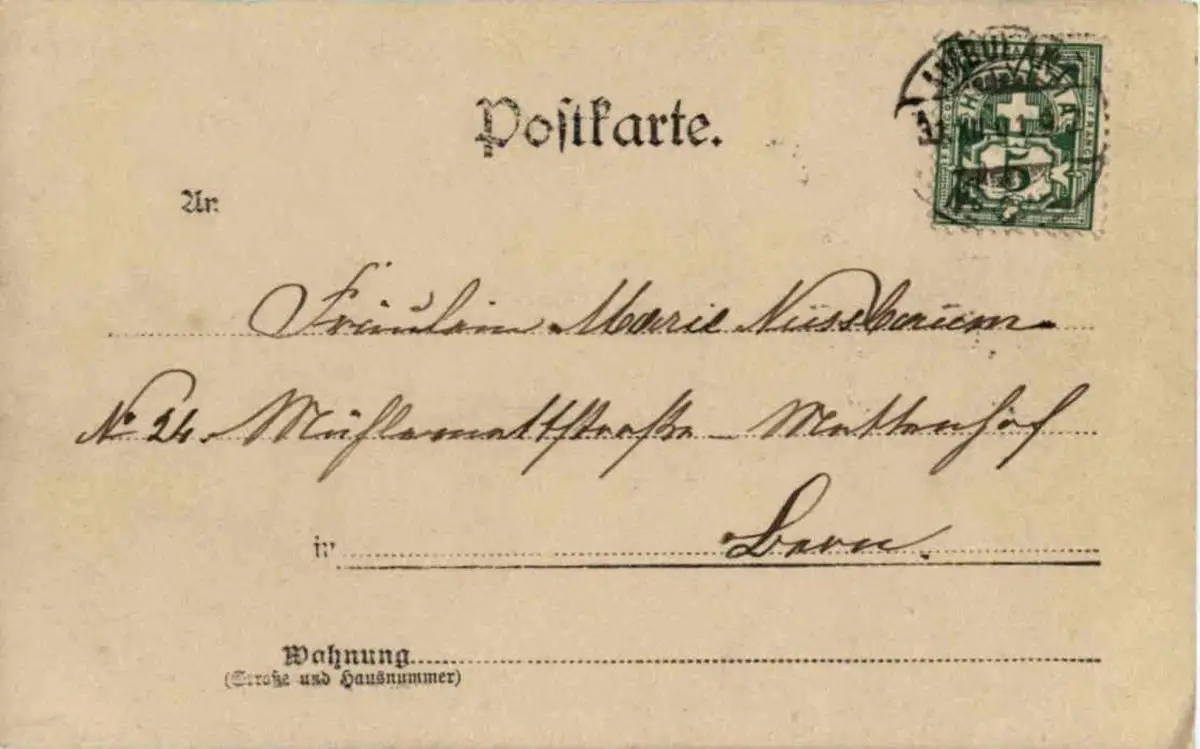 Postkarte.
AMBULANT
HELVETIA
FRANCO
FRANCO
5
An
Fräulein Marie Nüssbaum
No 24. Mühlemattstraße – Mattenhof
in Bern.
Wohnung
(Straße und Hausnummer)